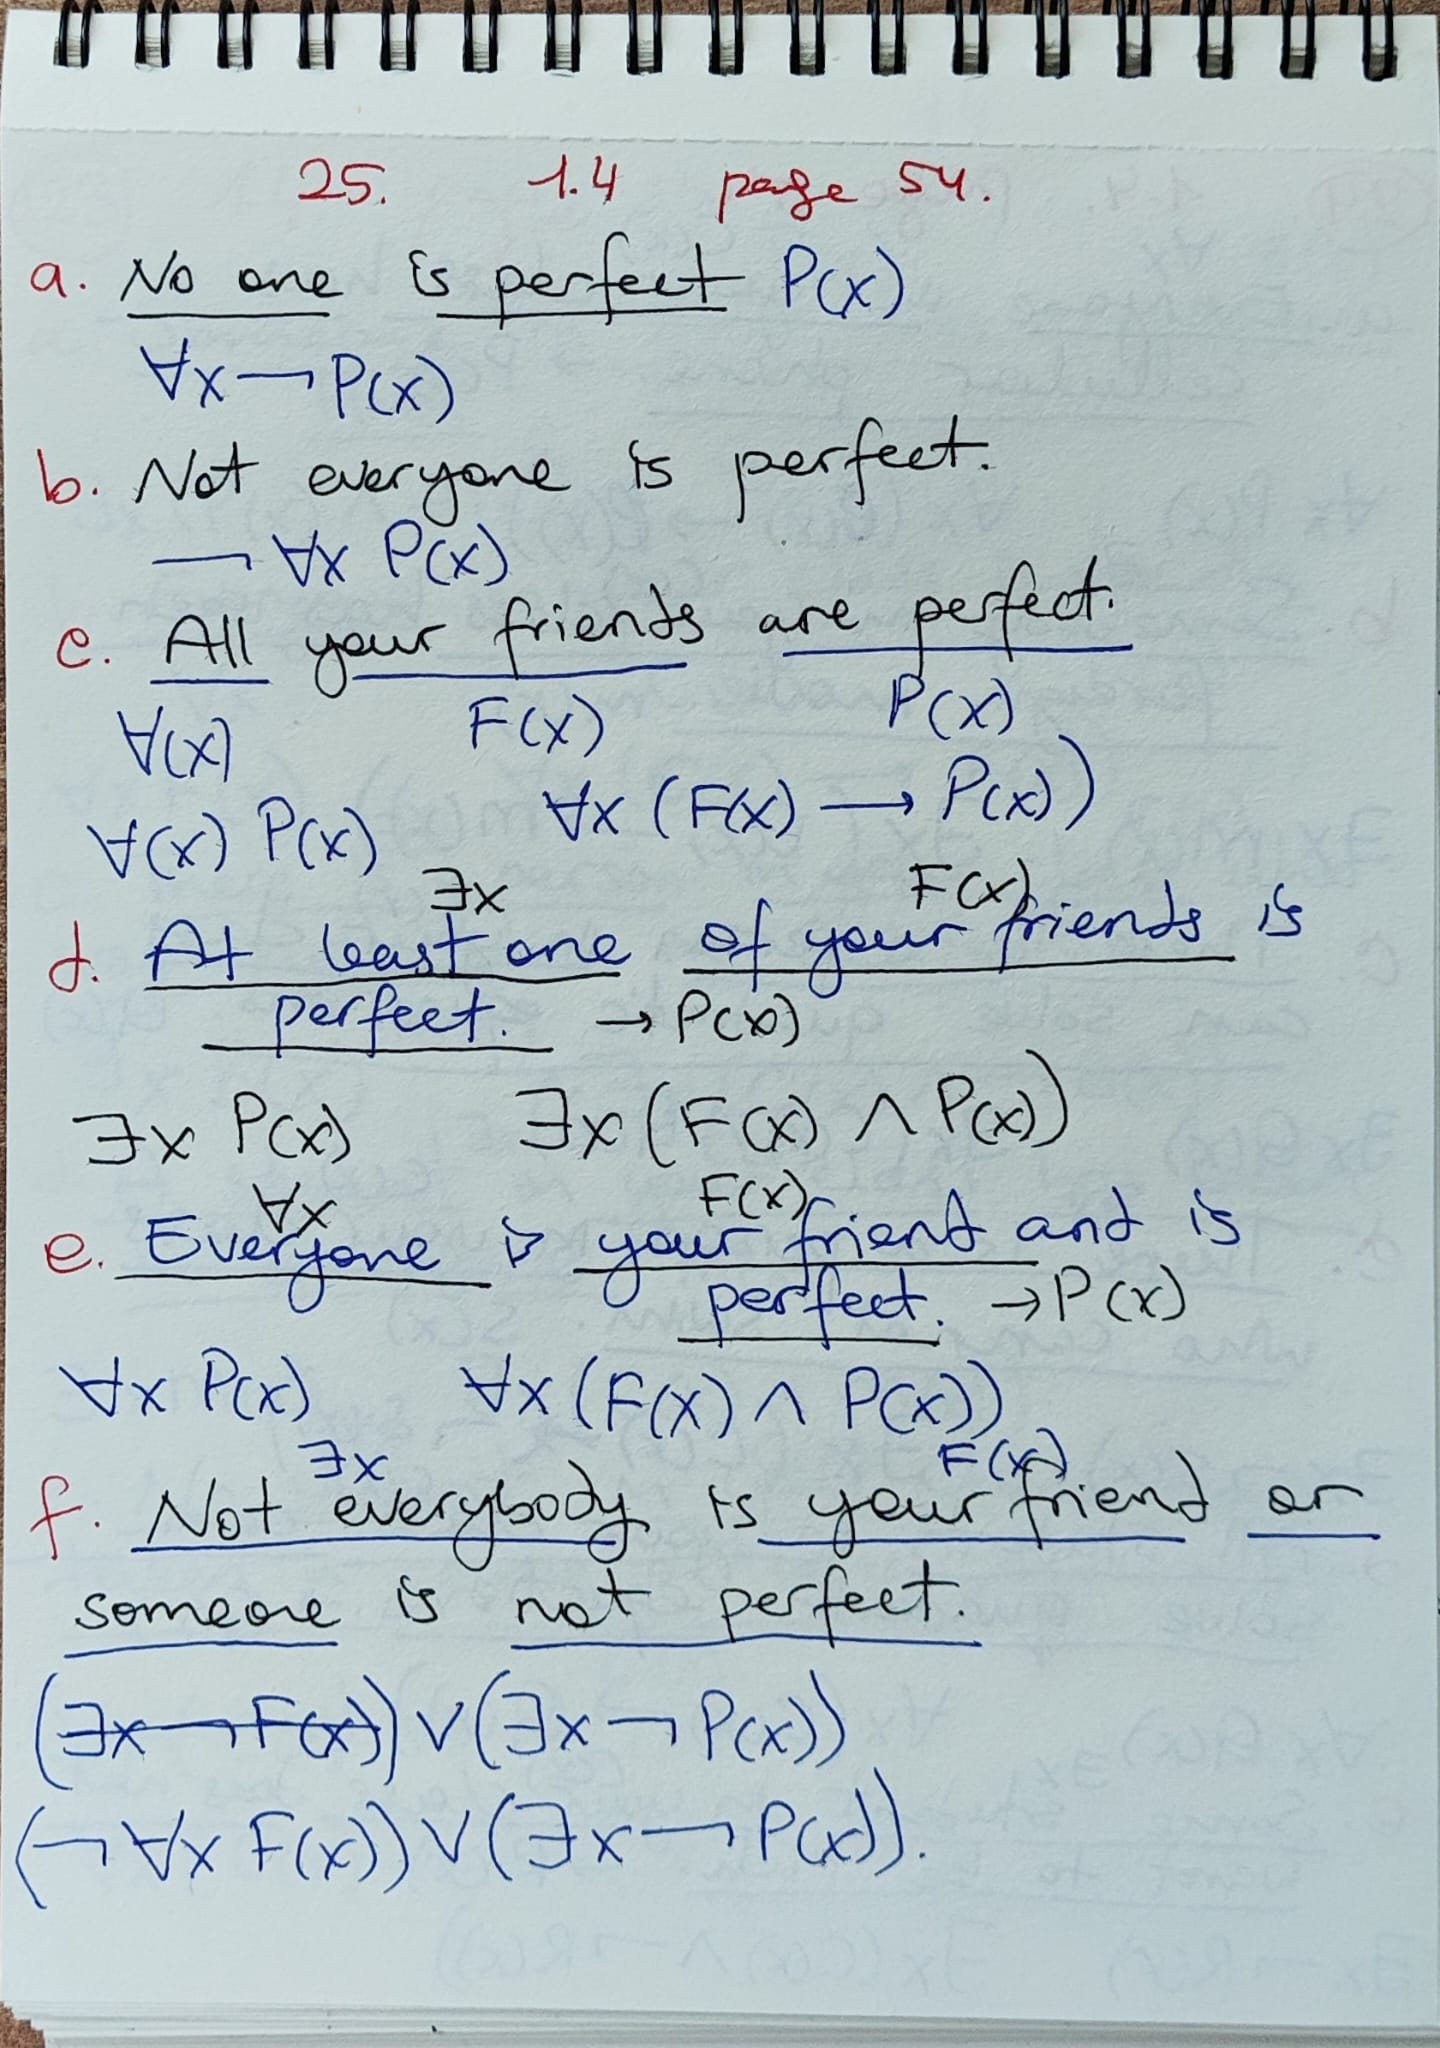 25. 1.4 page 54.
a. No one is perfect P(x)
∀x ¬ P(x)
b. Not everyone is perfect.
¬ ∀x P(x)
c. All your friends are perfect.
∀(x) F(x) P(x)
∀(x) P(x) ∀x (F(x) → P(x))
∃x F(x)
d. At least one of your friends is
perfect. → P(x)
∃x P(x) ∃x (F(x) ∧ P(x))
∀x F(x)
e. Everyone is your friend and is
perfect. → P(x)
∀x P(x) ∀x (F(x) ∧ P(x))
∃x F(x)
f. Not everybody is your friend or
someone is not perfect.
(∃x ¬ F(x)) ∨ (∃x ¬ P(x))
(¬ ∀x F(x)) ∨ (∃x ¬ P(x)).